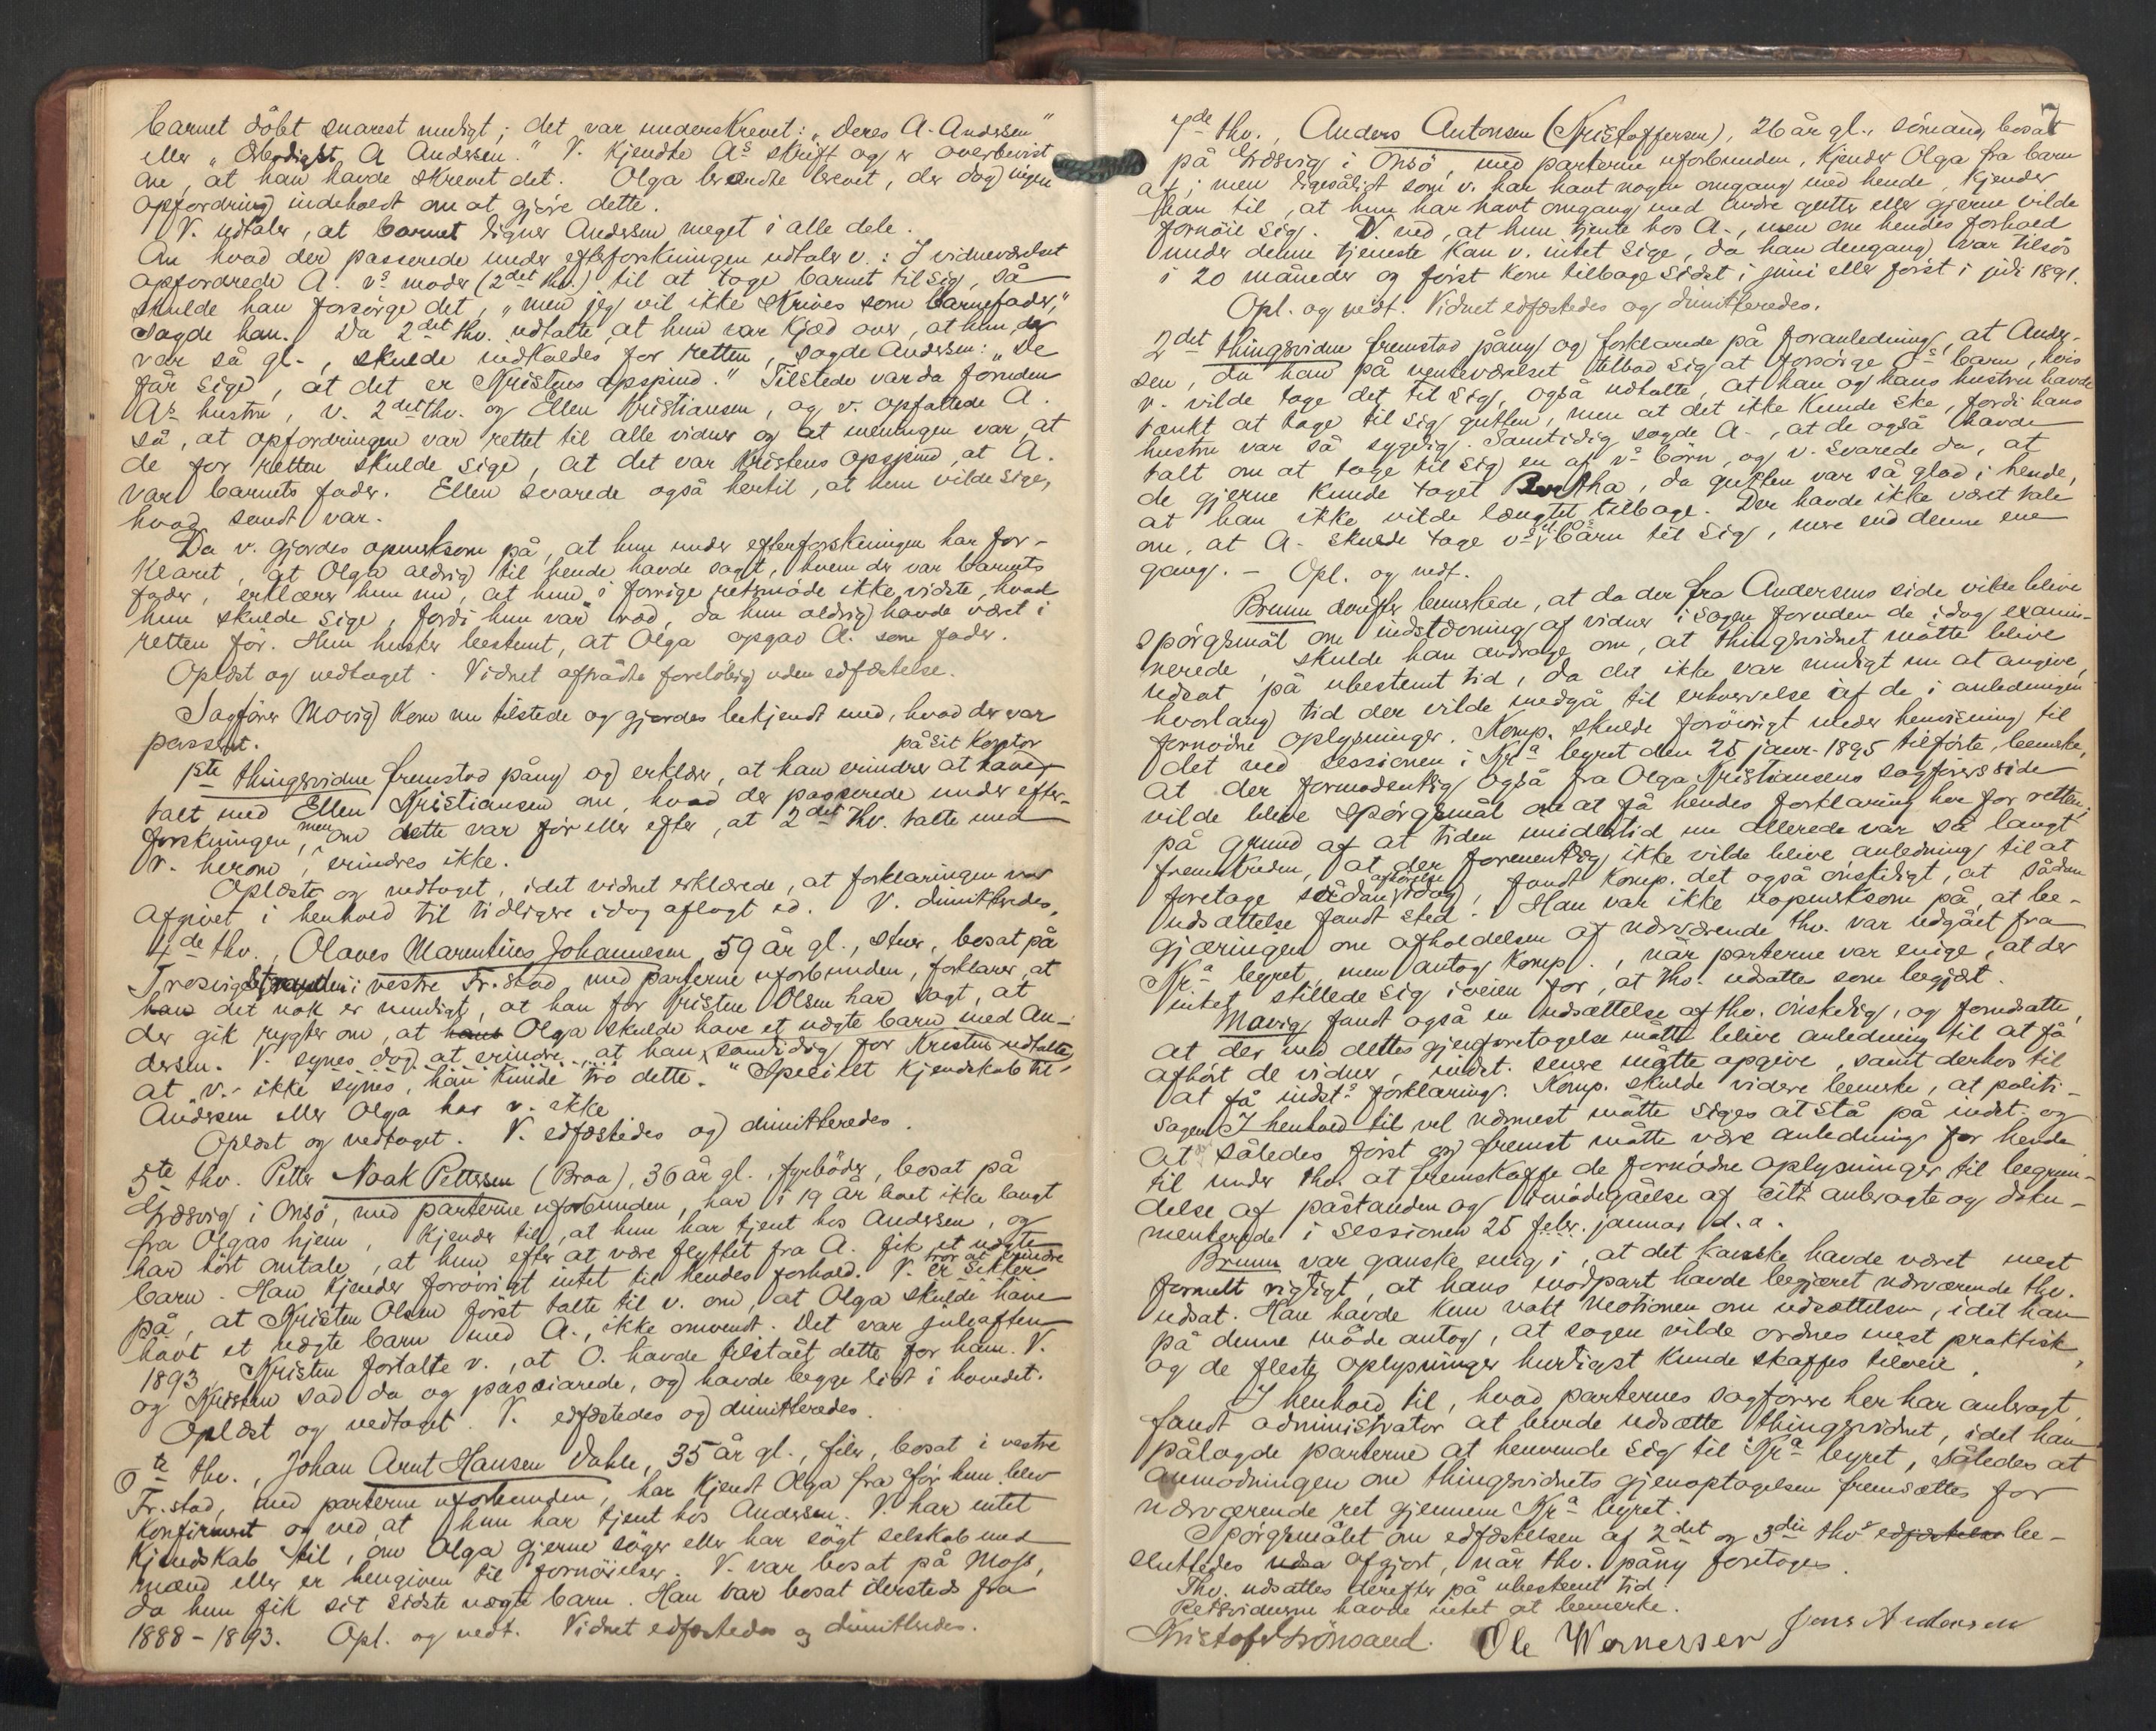 barnet döbt snarest muligt; det var underskrevet: „Deres A. Andersen"
eller „Ærbødigst A Andersen." V. kjendte A.s skrift og er overbevist
om, at han havde skrevet det. Olga brændte brevet, der dog ingen
opfordring indeholdt om at gjöre dette.
V. udtaler, at barnet ligner Andersen meget i alle dele.
Om hvad der passerede under efterforskningen udtaler v.: I vidneværelset
opfordrede A. v.s moder (2det thv.) til at tage barnet til sig, så
skulde han forsörge det, „men jeg vil ikke skrives som barnefader,"
sagde han. Da 2det thv. udtalte, at hun var kjed over, at hun, der
var så gl., skulde indkaldes for retten, sagde Andersen: „De
får sige, at det er Kristens opspind." Tilstede var da foruden
A.s hustru, v. 2det thv. og Ellen Kristiansen, og v. opfattede A.
så, at opfordringen var rettet til alle vidner og at meningen var, at
de for retten skulde sige, at det var Kristens opspind, at A.
var barnets fader. Ellen svarede også hertil, at hun vilde sige,
hvad sandt var.
Da v. gjordes opmerksom på, at hun under efterforskningen har for-
klaret, at Olga aldrig til hende havde sagt, hvem der var barnets
fader, erklærer hun nu, at hun i forrige retsmöde ikke vidste, hvad
hun skulde sige, fordi hun var ræd, da hun aldrig havde været i
retten för. Hun husker bestemt, at Olga opgav A. som fader.
Oplæst og vedtaget. Vidnet afträdte forelöbig uden edfæstelse.
Sagförer Movig kom nu tilstede og gjordes bekjendt med, hvad der var
passert.
på sit kontor
1ste thingsvidne fremstod påny og erklær, at han erindrer at have
talt med Ellen Kristiansen om, hvad der passerede under efter-
forskningen, men om dette var för eller efter, at 2det thv. talte med
v. herom, erindres ikke.
Oplæste og vedtaget, idet vidnet erklærede, at forklaringen var
afgivet i henhold til tidligere idag aflagt ed. V. dimitteredes.
4de thv., Olaves Marentius Johannesen, 59 år gl., stuer, bosat på
Trosvigstranden i vestre Fr.stad med parterne uforbunden, forklarer, at
han det nok er muligt, at han for Kristen Olsen har sagt, at
der gik rygter om, at hans Olga skulde have et uægte barn med An-
dersen. V. synes dog at erindre, at han samtidig for Kristen udtalte,
at v. ikke synes, han kunde tro dette. Specielt kjendskab til
Andersen eller Olga har v. ikke
Oplæst og vedtaget. V. edfæstedes og dimitteredes.
5te thv. Petter Noak Pettersen (Braa), 36 år gl., fyrböder, bosat på
Græsvig i Onsö, med parterne uforbunden, har i 19 år boet ikke langt
fra Olgas hjem, kjender til, at hun har tjent hos Andersen, og
har hört omtale, at hun efter at være flyttet fra A. fik et uægte
barn. Han kjender forövrigt intet til hendes forhold. V. er sikker
tror at erindre
på, at Kristen Olsen först talte til v. om, at Olga skulde have
havt et uægte barn med A., ikke omvendt. Det var juleaften
1893. Kristen fortalte v., at O. havde tilstået dette for ham. V.
og Kristen sad da og passiarede, og havde begge lidt i hovedet.
Oplæst og vedtaget. V. edfæstedes og dimitteredes.
6te thv., Johan Arnt Hansen Dahle, 35 år gl., filer, bosat i vestre
Fr.stad, med parterne uforbunden, har kjendt Olga fra för hun blev
konfirmert og ved, at hun har tjent hos Andersen. V. har intet
kjendskab til, om Olga gjerne söger eller har sögt selskab med
mænd eller er hengiven til fornöielser. V. var bosat på Moss,
da hun fik sit sidste uægte barn. Han var bosat dersteds fra
1888-1893. Opl. og vedt. Vidnet edfæstedes og dimitteredes.
7
7de thv., Anders Antonsen (Kristoffersen), 26 år gl., sömand, bosat
på Græsvig i Onsö, med parterne uforbunden, kjender Olga fra barn
af; men ligesålidt som v. har havt nogen omgang med hende, kjender
han til, at hun har havt omgang med andre gutter eller gjerne vilde
fornöie sig. V. ved, at hun tjente hos A., men om hendes forhold
under denne tjeneste kan v. intet sige, da han dengang var tilsös
i 20 måneder og först kom tilbage sidst i juni eller först i juli 1891.
Opl. og vedt. Vidnet edfæstedes og dimitteredes.
2det thingsvidne fremstod påny og forklarede på foranledning, at Ander-
sen, da han på venteværelset tilbød sig at forsörge O.s barn, hvis
v. vilde tage det til sig, også udtalte, at han og hans hustru havde
tænkt at tage til sig gutten, men at det ikke kunde ske, fordi hans
hustru var så sygelig. Samtidig sagde A., at de også havde
talt om at tage til sig en af v.s börn, og v. svarede da, at
de gjerne kunde taget Bertha, da gutten var så glad i hende,
at han ikke vilde længtet tilbage. Der havde ikke været tale
om, at A. skulde tage v.s barn til sig, mere end denne ene
gang. - Opl. og vedt.
Brunn derefter bemerkede, at da der fra Andersens side vilde blive
spörgsmål om indstævning af vidner i sagen foruden de idag exami-
nerede, skulde han andrage om, at thingsvidnet måtte blive
udsat på ubestemt tid, da det ikke var muligt nu at angive,
hvorlang tid der vilde medgå til erhvervelse af de i anledningen
fornödne oplysninger. Komp. skulde forövrigt under henvisning til
det ved sessionen i Kr.a byret den 25 janr. 1895 tilförte, bemerke,
at der formodentlig også fra Olga Kristiansens sagförers side
vilde blive spörgsmål om at få hendes forklaring her for retten;
på grund af at tiden imidlertid nu allerede var så langt
fremskreden, at der formentlig ikke vilde blive anledning til at
foretage sådan afhörelse idag, fandt komp. det også önskeligt, at sådan
udsættelse fandt sted. Han var ikke uopmerksom på, at be-
gjæringen om afholdelsen af nærværende thv. var udgået fra
Kr.a byret, men antog komp., når parterne var enige, at der
intet stillede sig iveien for, at thv. udsattes som begjært.
Movig fandt også en udsættelse af thv. önskelig, og forudsatte,
at der ved dettes gjenforetagelse måtte blive anledning til at få
afhört de vidner, indst. senere måtte opgive, samt derhos til
at få indst.s forklaring. Komp. skulde videre bemerke, at politi-
sagen I henhold til vel nærmest måtte siges at stå på indst. og
at således först og fremst måtte være anledning for hende
til under thv. at fremskaffe de fornödne oplysninger til begrun-
delse af påstanden og imödegåelse af cit.s anbragte og doku-
menterede i sessionen 25 febr. januar d. a.
Brunn var ganske enig i, at det kanske havde været mest
formelt rigtigt, at hans modpart havde begjæret nærværende thv.
udsat. Han havde kun vakt motionen om udsættelsen, idet han
på denne måde antog, at sagen vilde ordnes mest praktisk,
og de fleste oplysninger hurtigst kunde skaffes tilveie.
I henhold til, hvad parternes sagförere her har anbragt,
fandt administrator at burde udsætte thingsvidnet, idet han
pålagde parterne at henvende sig til Kr.a byret, således at
anmodningen om thingsvidnets gjenoptagelsen fremsættes for
nærværende ret gjennem Kr.a byret.
Spörgsmålet om edfæstelsen af 2det og 3die thv.s edfæstelse be-
sluttedes udsa afgjort, når thv. påny foretages.
Thv. udsattes derefter på ubestemt tid.
Retsvidnerne havde intet at bemerke.
Kristofer Grönsand. Ole Wernersen Jens Andersen